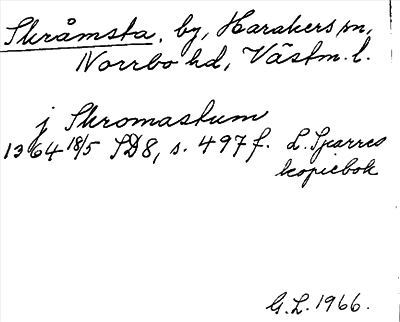 Skråmsta, by, Harakers sn,
Norrbo hd, Västm. l.
j Skromastum
1364 18/5 SD8, s. 497 f. L. Sparres
kopiebok
G. L. 1966.